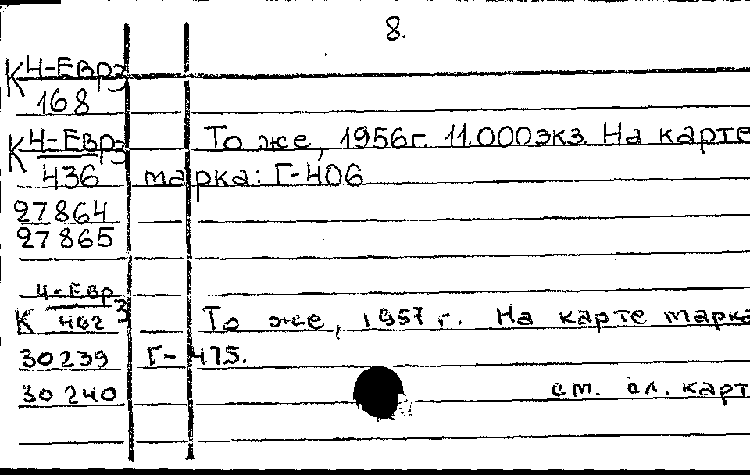 8.
К 4-Евр3
168
К 4-Евр3 То же, 1956г. 11.000экз. На карте
436 марка: Г-406
27864
27865
К 4-Евр3
462 То же, 1957 г. На карте марка
30239 Г-475.
30240 см. сл. карт